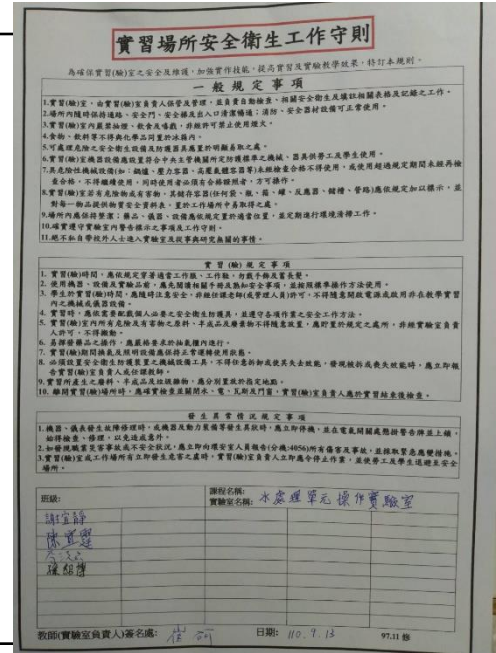 實習場所安全衛生工作守則
為確保實習(驗)室之安全及維護，加強實作技能，提高實習及實驗教學效果，特訂本規則。
一般規定事項
1.實習(驗)室，由實習(驗)室負責人保管及管理，並負責自動檢查，相關安全衛生及填註相關表格及記錄之工作。
2.場所內隨時保持通路、安全門、安全梯及出入口清潔暢通；消防、安全器材設備可正常使用。
3.實習(驗)室內嚴禁抽煙、飲食及嘻戲，非經許可禁止使用煙火。
4.食物、飲料等不得與化學品同置於冰箱內。
5.可處理危險之安全衛生及防護器具應置於明顯易取之處。
6.實習(驗)室機器設備應設置符合中央主管機關所定防護標準之機械、器具供勞工及學生使用。
7.具危險性機械設備(如：鍋爐、壓力容器、高壓氣體容器等)未經檢查合格不得使用，或使用超過規定期間未經再檢
查合格，不得繼續使用，同時使用者必須有合格證照者，方可操作。
8.實習(驗)室若有危險物或有害物，其儲存容器(任何袋、瓶、箱、罐、反應器、儲槽、管路)應依規定加以標示，並
對每一物品提供物質安全資料表，置於工作場所中易取得之處。
9.場所內應保持整潔；藥品、儀器、設備應依規定置於適當位置，並定期進行環境清掃工作。
10.確實遵守實驗室內警告標示之事項及工作守則。
11.絕不私自帶校外人士進入實驗室及從事與研究無關的事情。
實習(驗)規定事項
1. 實習(驗)時間，應依規定穿著適當工作服、工作鞋，勿戴手飾及蓄長髮。
2. 使用機器、設備及實驗品前，應先閱讀相關手冊及熟知安全事項，並按照標準操作方法使用。
3. 學生於實習(驗)時間，應隨時注意安全，非經任課老師(或管理人員)許可，不得隨意開啟電源或啟用非在教學實習
內之機械或儀器設備。
4. 實習時，應依需要配戴個人必要之安全衛生防護具，並遵守各項作業之安全工作方法。
5. 實習(驗)室內所有危險及有害物之原料、半成品及廢棄物不得隨意放置，應貯置於規定之處所，非經實驗室負責
人許可，不得搬動。
6. 易揮發藥品之操作，應嚴格要求於抽氣櫃內進行。
7. 實習(驗)期間換氣及照明設備應保持正常運轉使用狀態。
8. 必須設置安全衛生防護裝置之機械設備工具，不得任意拆卸或使其失去效能，發現被拆或喪失效能時，應立即報
告實習(驗)室負責人或任課教師。
9. 實習所產生之廢料、半成品及垃圾雜物，應分別置放於指定地點。
10. 離開實習(驗)場所時，應確實檢查並關閉水、電、瓦斯及門窗，實習(驗)室負責人應於實習結束後檢查。
發生異常情況規定事項
1.機器、儀表發生故障修理時，或機器及動力裝備等發生異狀時，應立即停機，並在電氣開關處懸掛警告牌並上鎖，
始得檢查、修理，以免造成意外。
2.如發現職業災害事故或不安全狀況，應立即向環安室人員報告(分機:4056)所有傷害及事故，並採取緊急應變措施。
3.實習(驗)室或工作場所有立即發生危害之虞時，實習(驗)室負責人立即應令停止作業，並使勞工及學生退避至安全
場所。
班級:
課程名稱:
實驗室名稱: 水處理單元操作實驗室
謝宜靜
教師(實驗室負責人)簽名處:
日期: 110.9.13
97.11 修